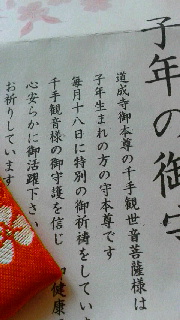 子年の御守
道成寺御本尊の千手観世音菩薩様は
子年生まれの方の守本尊です
毎月十八日に特別の御祈祷をしていま
千手観音様の御守護を信じ
健康
心安らかに御活躍下さい
お祈りしています